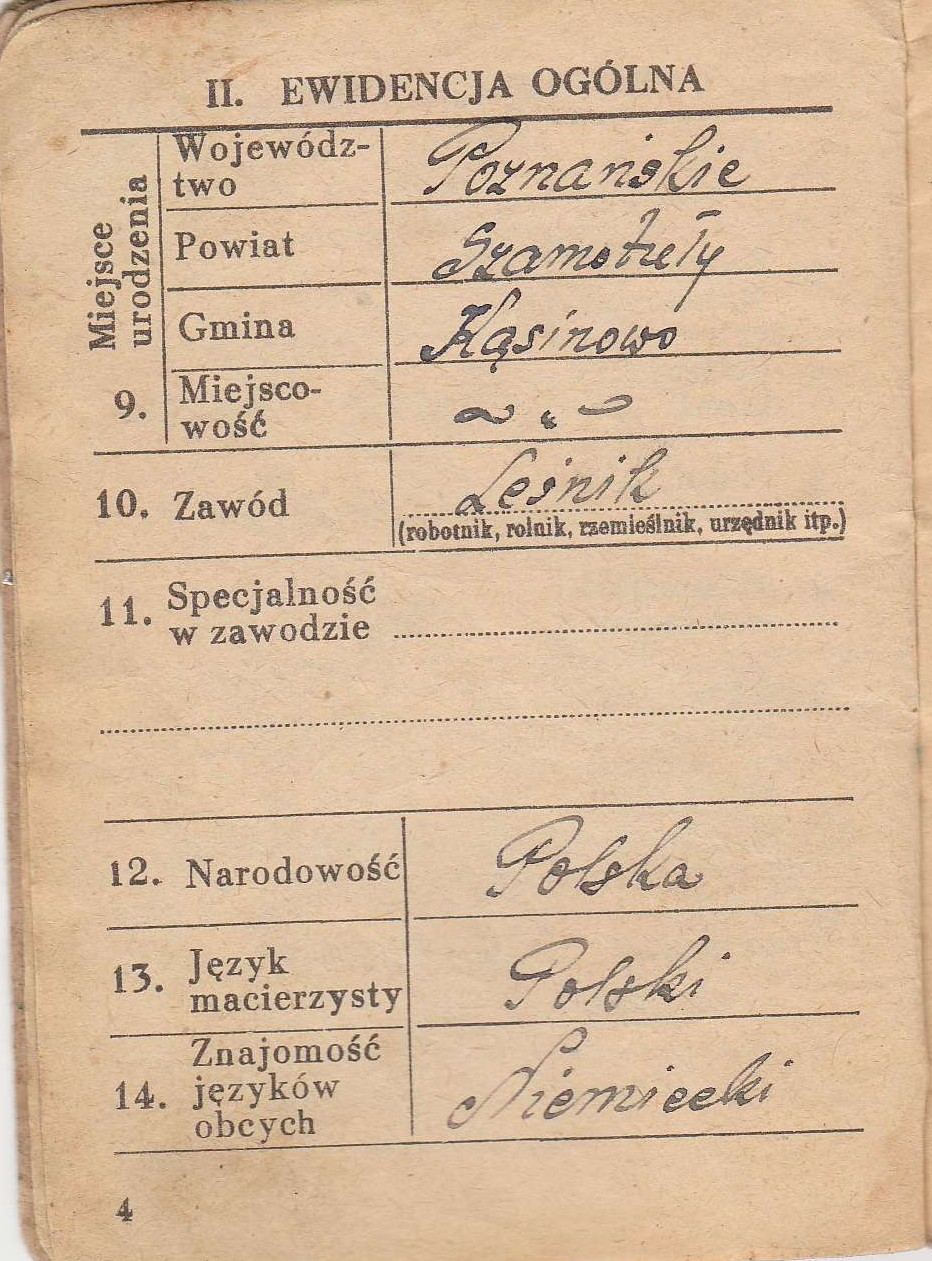 II. EWIDENCJA OGÓLNA
Miejsce
urodzenia
Wojewódz-
two
Poznańskie
Powiat
Szamotuły
Gmina
Kąsinowo
9.
Miejsco-
wość
~ „ ~
10. Zawód
Leśnik
(robotnik, rolnik, rzemieślnik, urzędnik itp.)
11. Specjalność
w zawodzie
12. Narodowość
Polska
13. Język
macierzysty
Polski
14. Znajomość
języków
obcych
Niemiecki
4